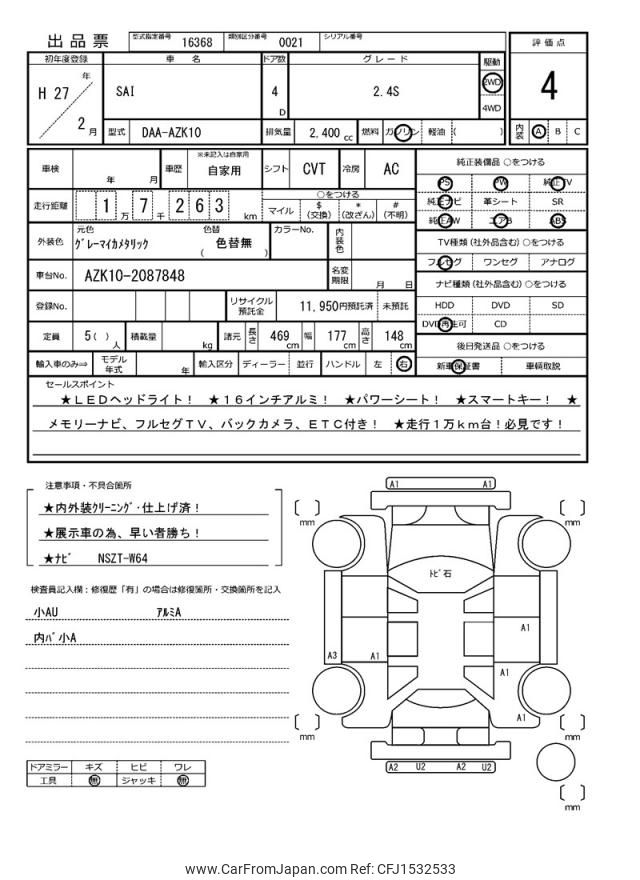 出品票 型式指定番号 16368 類別区分番号 0021 シリアル番号
評価点
初年度登録 車名 ドア数 グレード 駆動
H 27 年 2 月 SAI 4 D 2.4S 2WD 4WD
4
型式 DAA-AZK10 排気量 2,400 cc 燃料 ガソリン 軽油 ( )
内装 A B C
車検 年 月 車歴 ※未記入は自家用 自家用 シフト CVT 冷房 AC
純正装備品 ○をつける
PS PW 純正TV
走行距離 1 万 7 千 2 6 3 km ○をつける
マイル $ (交換) * (改ざん) # (不明)
純正ナビ 革シート SR
純正AW エアB ABS
外装色 元色 グレーマイカメタリック 色替 ( 色替無 ) カラーNo. 内装色
TV種類 (社外品含む) ○をつける
フルセグ ワンセグ アナログ
車台No. AZK10-2087848 名変期限 月 日
ナビ種類 (社外品含む) ○をつける
HDD DVD SD
登録No. リサイクル預託金 11,950円預託済 未預託
DVD再生可 CD
定員 5( ) 人 積載量 kg 諸元 長さ 469 cm 幅 177 cm 高さ 148 cm
後日発送品 ○をつける
輸入車のみ⇒ モデル年式 年 輸入区分 ディーラー 並行 ハンドル 左 右
新車保証書 車輌取説
セールスポイント
★LEDヘッドライト！ ★16インチアルミ！ ★パワーシート！ ★スマートキー！ ★
メモリーナビ、フルセグTV、バックカメラ、ETC付き！ ★走行1万km台！必見です！
注意事項・不具合箇所
★内外装クリーニング・仕上げ済！
★展示車の為、早い者勝ち！
★ナビ NSZT-W64
検査員記入欄：修復歴「有」の場合は修復箇所・交換箇所を記入
小AU アルミA
内バ小A
A1 A1
mm mm
トビ石
A1
A3 A1
A1
A1
mm mm
A2 U2 A2 U2
mm
ドアミラー キズ ヒビ ワレ
工具 無 ジャッキ 無
www.CarFromJapan.com Ref: CFJ1532533